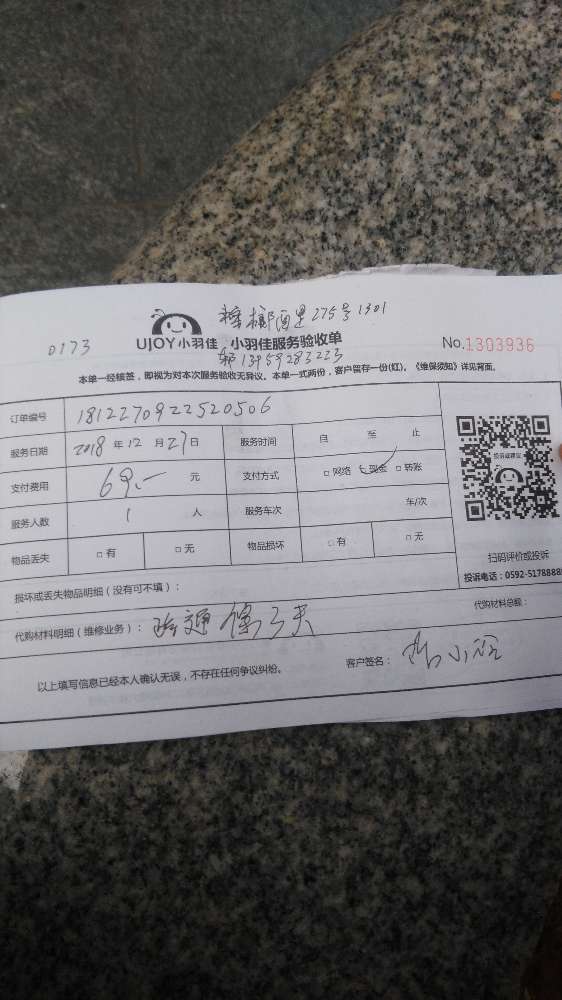 275号1301
0173
UJOY小羽佳 小羽佳服务验收单
No.1303936
13959283223
本单一经核签，即视为对本次服务验收无异议。本单一式两份，客户留存一份(红)。《维保须知》详见背面。
订单编号 1812270922520506
服务日期 2018 年 12 月 27 日 服务时间 自 至 止
支付费用 69.- 元 支付方式 □ 网络 □ 现金 □ 转账
服务人数 1 人 服务车次 车/次
物品丢失 □ 有 □ 无 物品损坏 □ 有 □ 无
扫码评价或投诉
投诉电话：0592-5178888
损坏或丢失物品明细（没有可不填）：
代购材料明细（维修业务）： 疏通 保3天
代购材料总额：
以上填写信息已经本人确认无误，不存在任何争议纠纷。
客户签名：